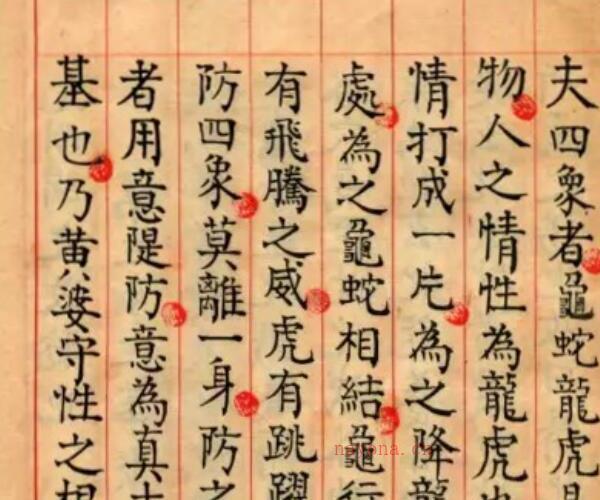 夫四象者龜蛇龍虎
物人之情性為龍虎
情打成一片為之降龍
處為之龜蛇相結龜行
有飛騰之威虎有跳躍
防四象莫離一身防之
者用意隄防意為真土
基也乃黃婆守性之